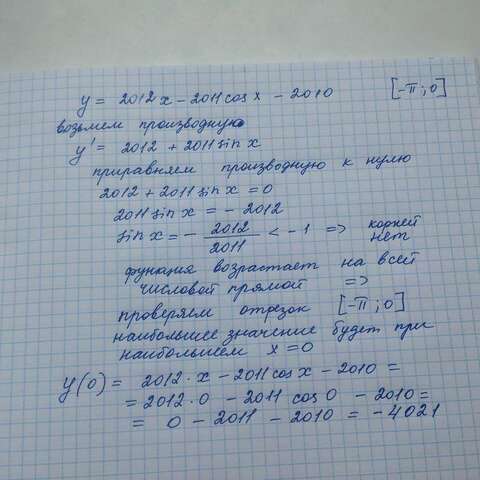 y = 2012x - 2011 cos x - 2010 [-π; 0]
возьмем производную
y' = 2012 + 2011 sin x
приравняем производную к нулю
2012 + 2011 sin x = 0
2011 sin x = - 2012
sin x = - 2012/2011 < - 1 => корней нет
функция возрастает на всей
числовой прямой =>
проверяем отрезок [-π; 0]
наибольшее значение будет при
наибольшем x = 0
y(0) = 2012 · x - 2011 cos x - 2010 =
= 2012 · 0 - 2011 cos 0 - 2010 =
= 0 - 2011 - 2010 = - 4021